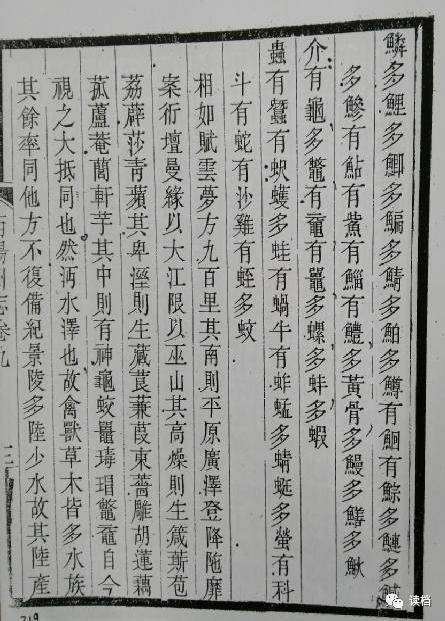 鱗多鯉多鯽多鯿多鯖多鮊多鱒有鮰有鯨多鰱多鱤
多鰺有鮎有鮆有鯔有鱧多黃骨多鰻多鱔多鰍
介有龜多鼈有黿有鼉多螺多蚌多蝦
蟲有蠶有蚇蠖多蛙有蝸牛有蚱蜢多蜻蜓多螢有科
斗有蛇有沙雞有蛭多蚊
相如賦雲夢方九百里其南則平原廣澤登降陁靡
案衍壇曼緣以大江限以巫山其高燥則生葴菥苞
荔薜莎青薠其卑溼則生藏莨蒹葭東蘠雕胡蓮藕
菰蘆菴䕡軒芋其中則有神龜蛟鼉瑇瑁鼈黿自今
視之大抵同也然沔水澤也故禽獸草木皆多水族
其餘率同他方不復備紀景陵多陸少水故其陸產
沔陽州志卷九
十二
219
读档